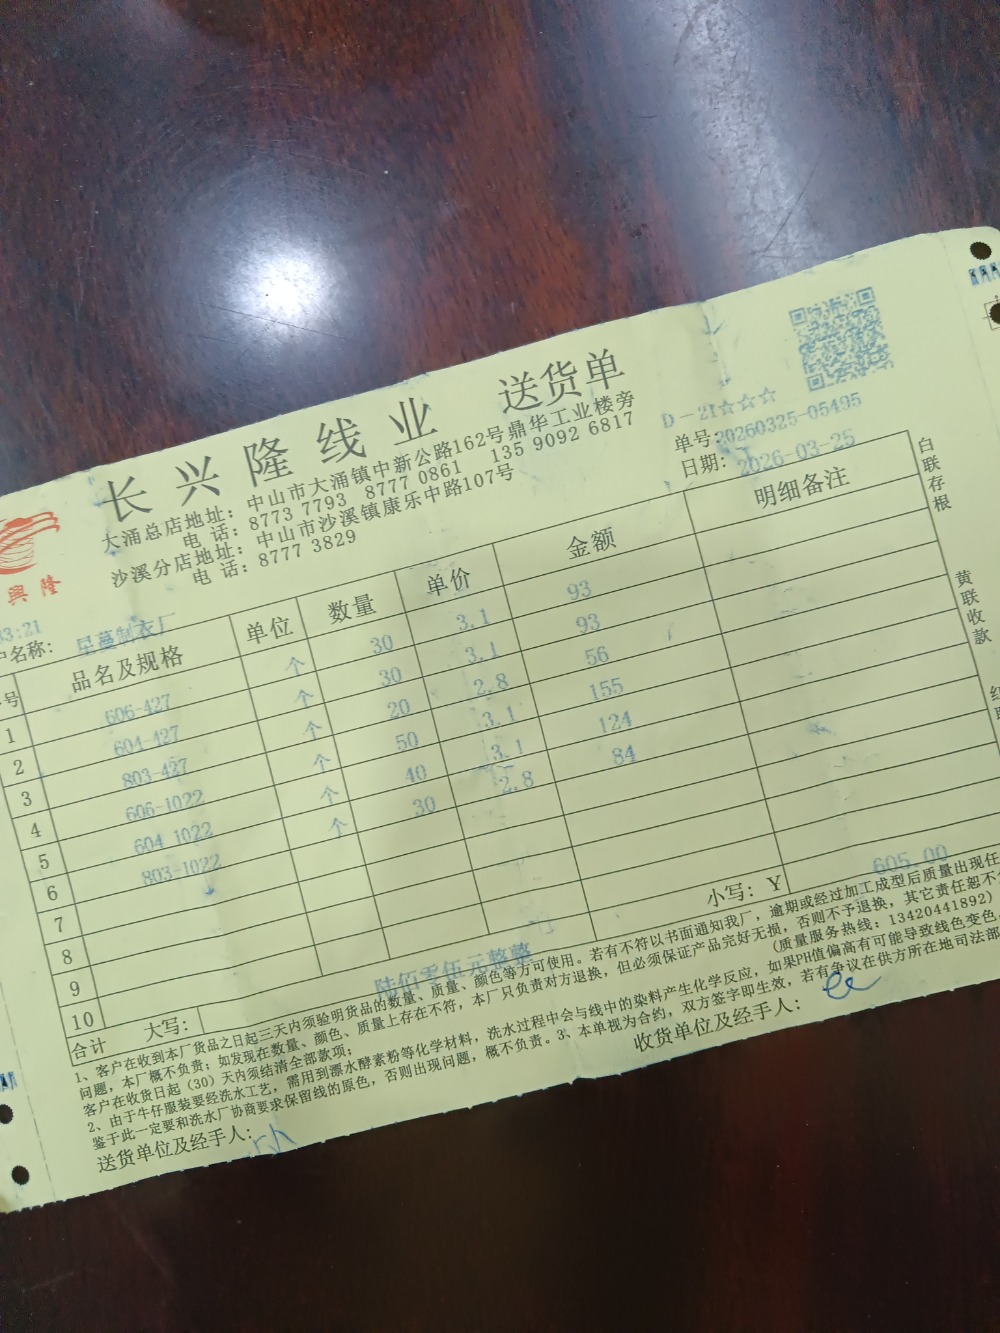 长兴隆线业 送货单
大涌总店地址：中山市大涌镇中新公路162号鼎华工业楼旁
电 话：8773 7793 8777 0861 135 9092 6817
沙溪分店地址：中山市沙溪镇康乐中路107号
电 话：8777 3829
D-21☆☆☆
单号:20260325-05495
日期: 2026-03-25
興隆
03:21
户名称: 星蔓制衣厂
号 品名及规格 单位 数量 单价 金额 明细备注
1 606-427 个 30 3.1 93
2 604-427 个 30 3.1 93
3 803-427 个 20 2.8 56
4 606-1022 个 50 3.1 155
5 604 1022 个 40 3.1 124
6 803-1022 个 30 2.8 84
7
8
9
10
合计 大写: 陆佰零伍元整整 小写: Y 605.00
1、客户在收到本厂货品之日起三天内须验明货品的数量、质量、颜色等方可使用。若有不符以书面通知我厂，逾期或经过加工成型后质量出现任
问题，本厂概不负责；如发现在数量、颜色、质量上存在不符，本厂只负责对方退换，但必须保证产品完好无损，否则不予退换，其它责任恕不
客户在收货日起（30）天内须结清全部款项； （质量服务热线：13420441892）
2、由于牛仔服装要经洗水工艺，需用到漂水酵素粉等化学材料，洗水过程中会与线中的染料产生化学反应，如果PH值偏高有可能导致线色变色，
鉴于此一定要和洗水厂协商要求保留线的原色，否则出现问题，概不负责。3、本单视为合约，双方签字即生效，若有争议在供方所在地司法部
送货单位及经手人: 收货单位及经手人:
白联存根
黄联收款
红